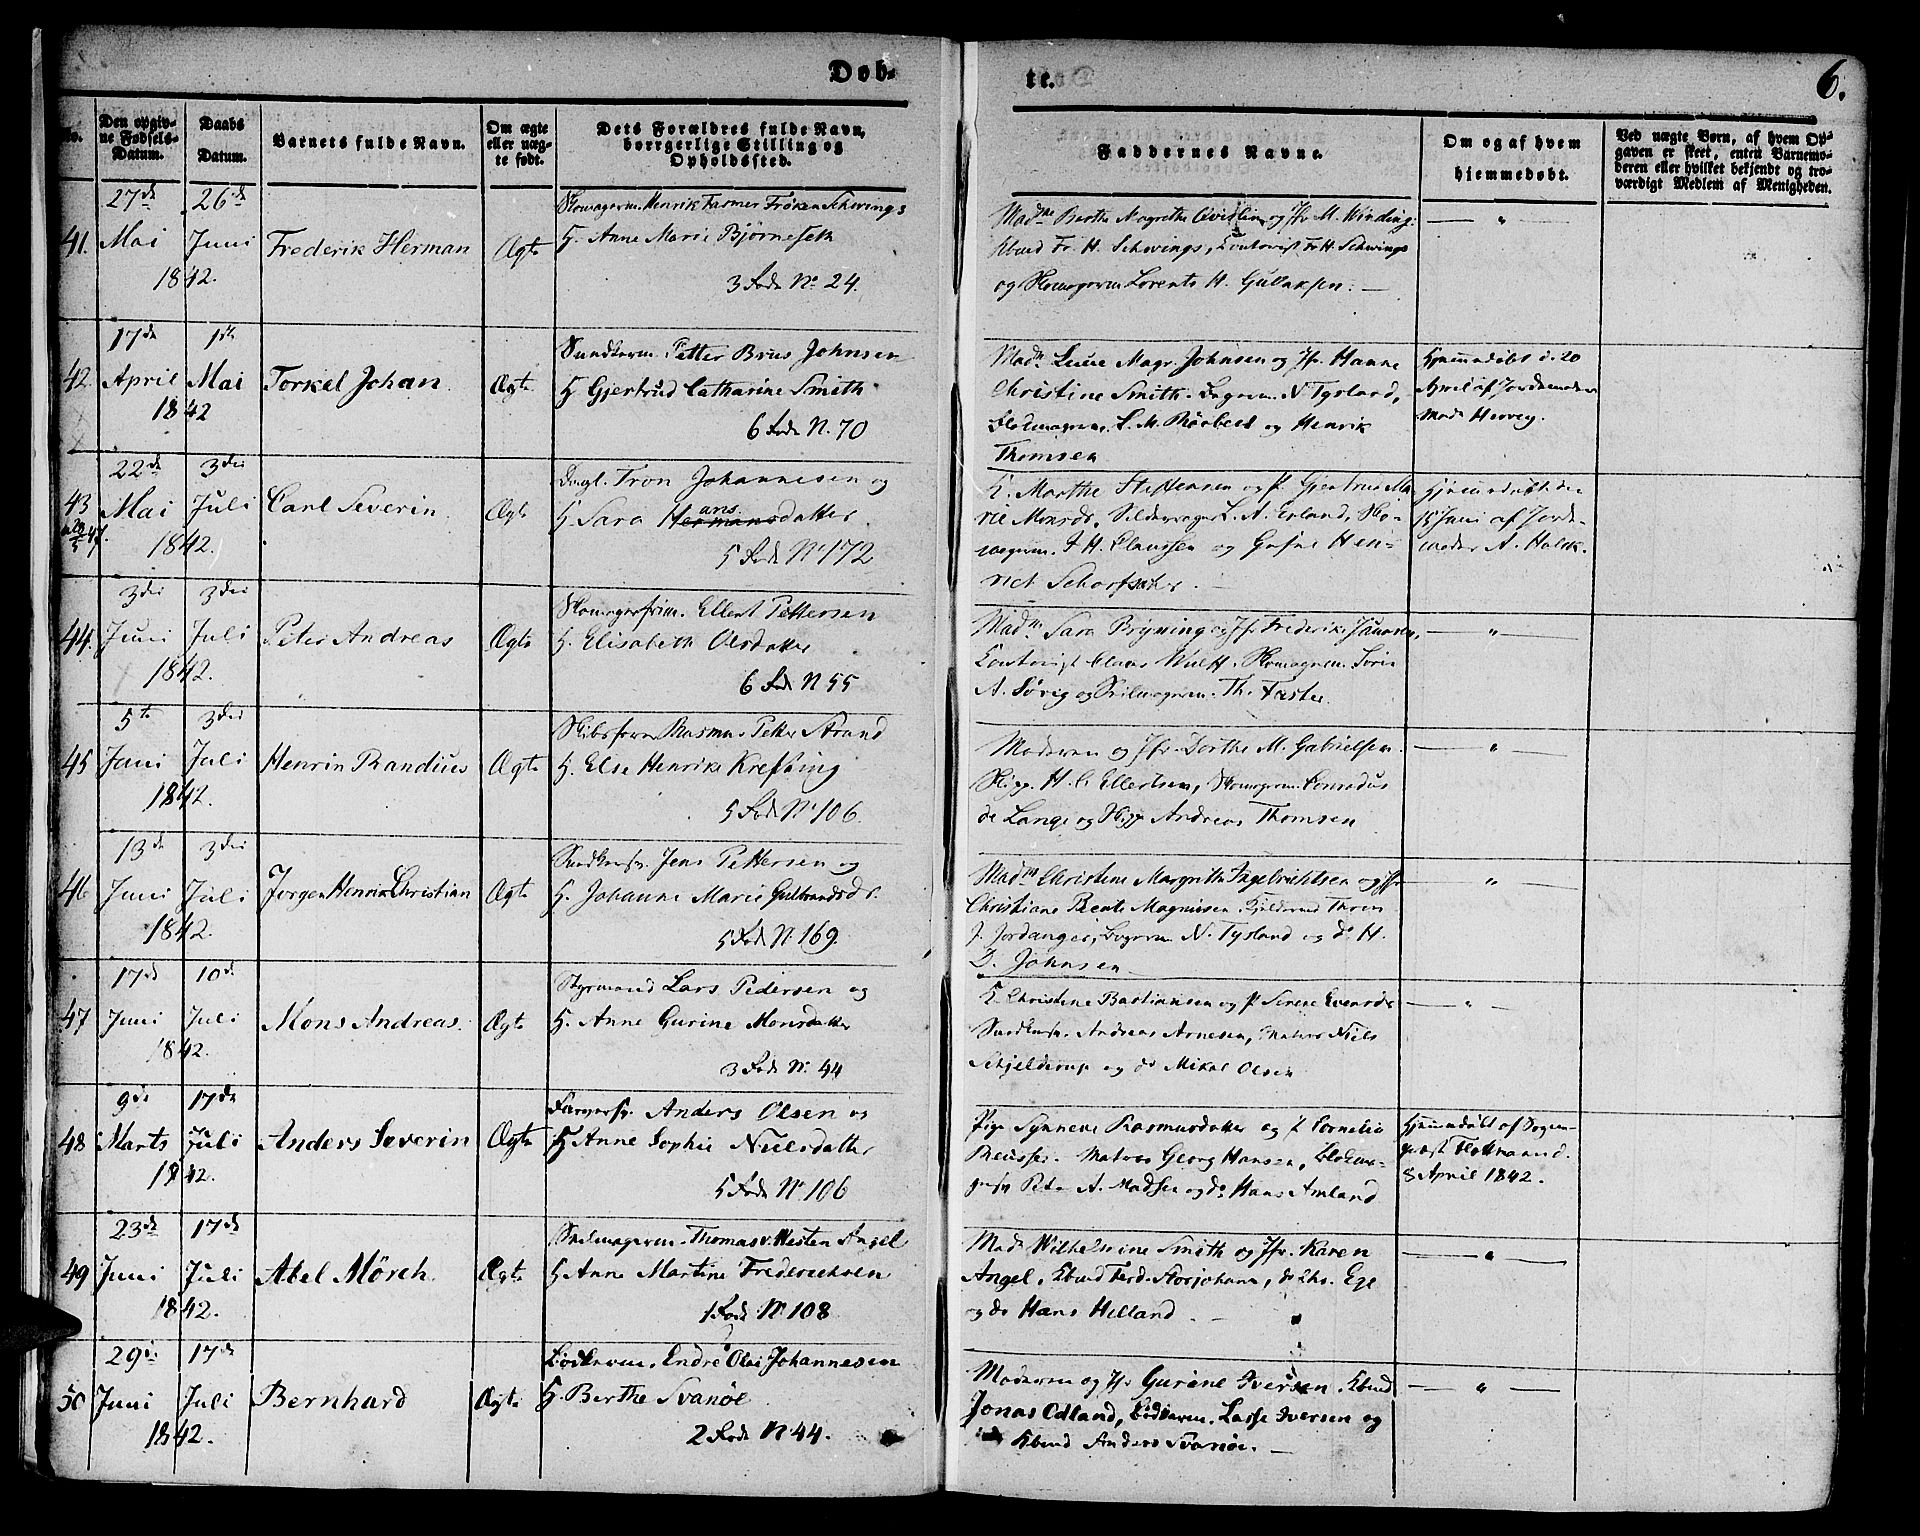 Døb-
te.
6.
No.
Den opgiv-
ne Fødsels-
Datum.
Daabs
Datum.
Barnets fulde Navn.
Om ægte
eller uæg-
te født.
Dets Forældres fulde Navn,
borgerlige Stilling og
Opholdssted.
Faddernes Navne.
Om og af hvem
hjemmedøbt.
Ved uægte Børn, af hvem Op-
gaven er skeet, enten Barnemo-
deren eller hvilket bekjendt og tro-
værdigt Medlem af Menigheden.
41.
27de
Mai
1842.
26de
Juni
Frederik Herman
Ægte
Skomagerm. Henrik Farmer Frøken Schwings
H. Anne Marie Bjørneseth
3 Rode No. 24.
Madme Berthe Magrethe Qvistlin og Jfr M. Winding.
Kbmd Fr. H. Schwings, Contorist Fr. H. Schwings
og Skomagerm Lorents H. Gullaksen.
42
17de
April
1842
1ste
Mai
Torkel Johan
Ægte
Petter Brus Johnsen
H Gjertrud Catharine Smith
6 Rode N. 70
Madm Lene Magr. Johnsen og Jfr. Hanne
Christine Smith. Bagerm. N Tysland,
L. M. og Henrik
Thomsen
Hjemmedøbt d. 20
April af Jordemoder
Mad. Hervig.
43
22de
Mai
1842.
3die
Juli
Carl Severin
Ægte
Tron Johannesen og
H Sara Hermansdatter
ans.
5 Rode No 172
K. Marthe Steffensen og P. Gjertrud Ma
rie Monsdr. L. A. Erland, Sko-
magerm. J H. Claussen og Henrich
Hjemmedøbt den
15 Juni af Jorde-
moder A. Holck.
44.
3die
Juni
1842.
3die
Juli
Peter Andreas
Ægte
Ellert Pettersen
H. Elisabeth Olsdatter
6 Rode N 55
Madm. Sara Bryning og Jfr Frederike Jansen,
Contorist Claus Wulff. Skomagerm. Sørin
A. Sørig og Th. Faster.
45
5te
Juni
1842.
3die
Juli
Henrik Randius
Ægte
Rasmus Petter Strand
H. Else Henrike Krefting
5 Rode No 106
Moderen og Jfr. Dorthe M. Gabrielsen.
Skipp. H. C. Ellertsen, Skomagerm. Conradus
de Lange og Skipp Andreas Thomsen
46
13de
Juni
1842.
3die
Juli
Jørgen Henrik Christian
Ægte
Jens Pettersen og
H. Johanne Marie Gulbrandsdr.
5 Rode No. 169.
Madm Christene Margrethe Ingebrichtsen og Jfr
Christiane Beate Magnusen
J. Jordanger, Bagerm N. Tysland og do H.
D. Johnsen
47
17de
Juni
1842.
10de
Juli
Mons Andreas.
Ægte
Styrmand Lars Pedersen og
H. Anne Gurine Monsdatter
3 Rode No. 44
K. Christine Bastiansen og P. Serene Evensdr
Andreas Arnesen, Matros Niels
Schjelderup og do Mikal Olsen
48
9de
Marts
1842.
17de
Juli
Anders Severin
Ægte
Farversv. Anders Olsen og
H Anne Sophie Nielsdatter
5 Rode No 106
Pige Synneve Rasmusdatter og P Cornelia
Reusser. Matros Georg Hansen,
Peter A. Madsen og do Hans Amland
Hjemmedøbt af Sogne-
præst Flottmand.
8 April 1842.
49
23de
Juni
1842.
17de
Juli
Abel Mörch.
Ægte
Seilmagerm. Thomas v. Westen Angel
H Anne Martine Frederichsen
1 Rode No 108
Madm Wilhelmine Smith og Jfr. Karen
Angel. Kbmd Ferd. Storjohann, do Chr. Ege
og do Hans Helland
50
29de
Juni
1842.
17de
Juli
Bernhard
Ægte
Bødkerm. Endre Olai Johannesen
H. Berthe Svanöe
2 Rode No 44.
Moderen og Jfr Gurine Iversen. Kbmd
Jonas Odland, Bødkerm. Lasse Iversen og
Kbmd Anders Svanöe.